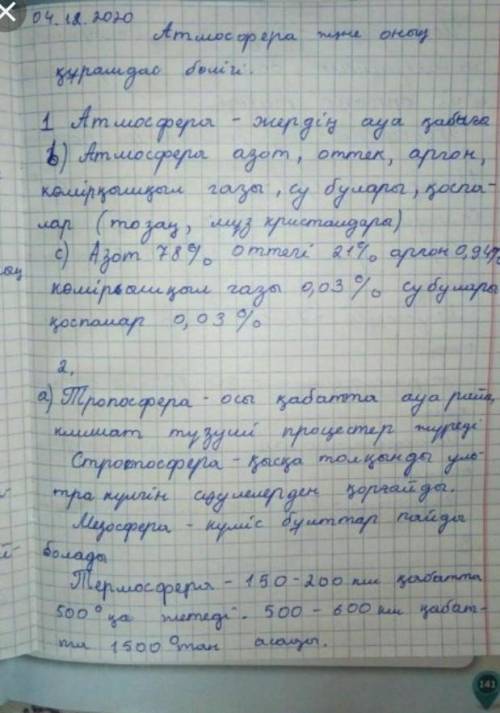 04.12.2020
Атмосфера және оның
құрамдас бөлігі.
1 Атмосфера - жердің ауа қабығы
b) Атмосфера азот, оттек, аргон,
көмірқышқыл газы, су булары, қоспа-
лар (тозаң, мұз кристалдары)
c) Азот 78% оттегі 21% аргон 0,94%
көмірқышқыл газы 0,03% су булары
қоспалар 0,03%
2,
a) Тропосфера - осы қабатта ауа райы,
климат түзуші процестер жүреді
Стротосфера - қысқа толқынды уль-
тра күлгін сәулелерден қорғайды.
Мезосфера - күміс бұлттар пайда
болады
Термосфера - 150-200 км қабатта
500° қа жетеді. 500 - 600 км қабат-
та 1500° тан асады.
141